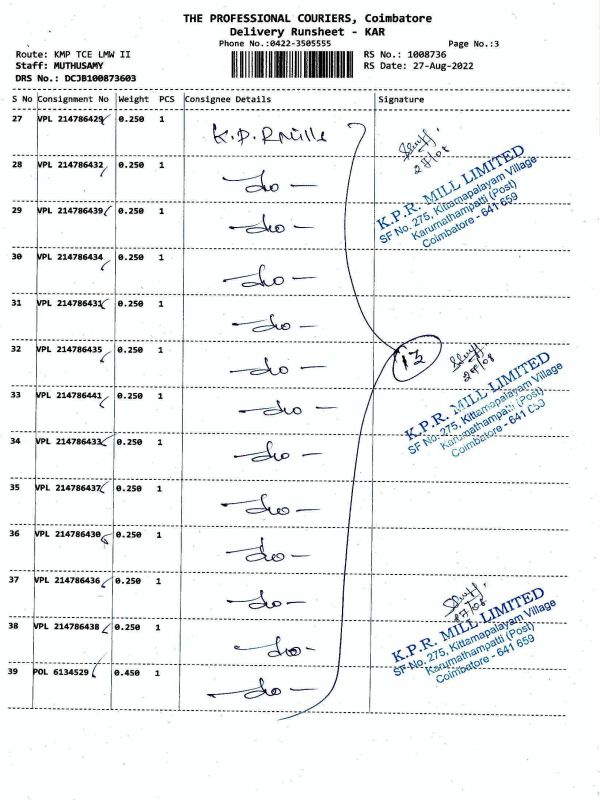 THE PROFESSIONAL COURIERS, Coimbatore
Delivery Runsheet - KAR
Phone No.:0422-3505555
Page No.:3
Route: KMP TCE LMW II
RS No.: 1008736
Staff: MUTHUSAMY
RS Date: 27-Aug-2022
DRS No.: DCJB100873603
S No Consignment No Weight PCS Consignee Details Signature
27 VPL 214786429 0.250 1 K.P.R Mills
27/08
28 VPL 214786432 0.250 1 -do-
K.P.R. MILL LIMITED
SF No. 275, Kittamapalayam Village
Karumathampatti (Post)
Coimbatore - 641 659
29 VPL 214786439 0.250 1 -do-
30 VPL 214786434 0.250 1 -do-
31 VPL 214786431 0.250 1 -do-
13
32 VPL 214786435 0.250 1 -do-
27/08
K.P.R. MILL LIMITED
SF No. 275, Kittamapalayam Village
Karumathampatti (Post)
Coimbatore - 641 659
33 VPL 214786441 0.250 1 -do-
34 VPL 214786433 0.250 1 -do-
35 VPL 214786437 0.250 1 -do-
36 VPL 214786430 0.250 1 -do-
37 VPL 214786436 0.250 1 -do-
27/08
38 VPL 214786438 0.250 1 -do-
K.P.R. MILL LIMITED
SF No. 275, Kittamapalayam Village
Karumathampatti (Post)
Coimbatore - 641 659
39 POL 6134529 0.450 1 -do-